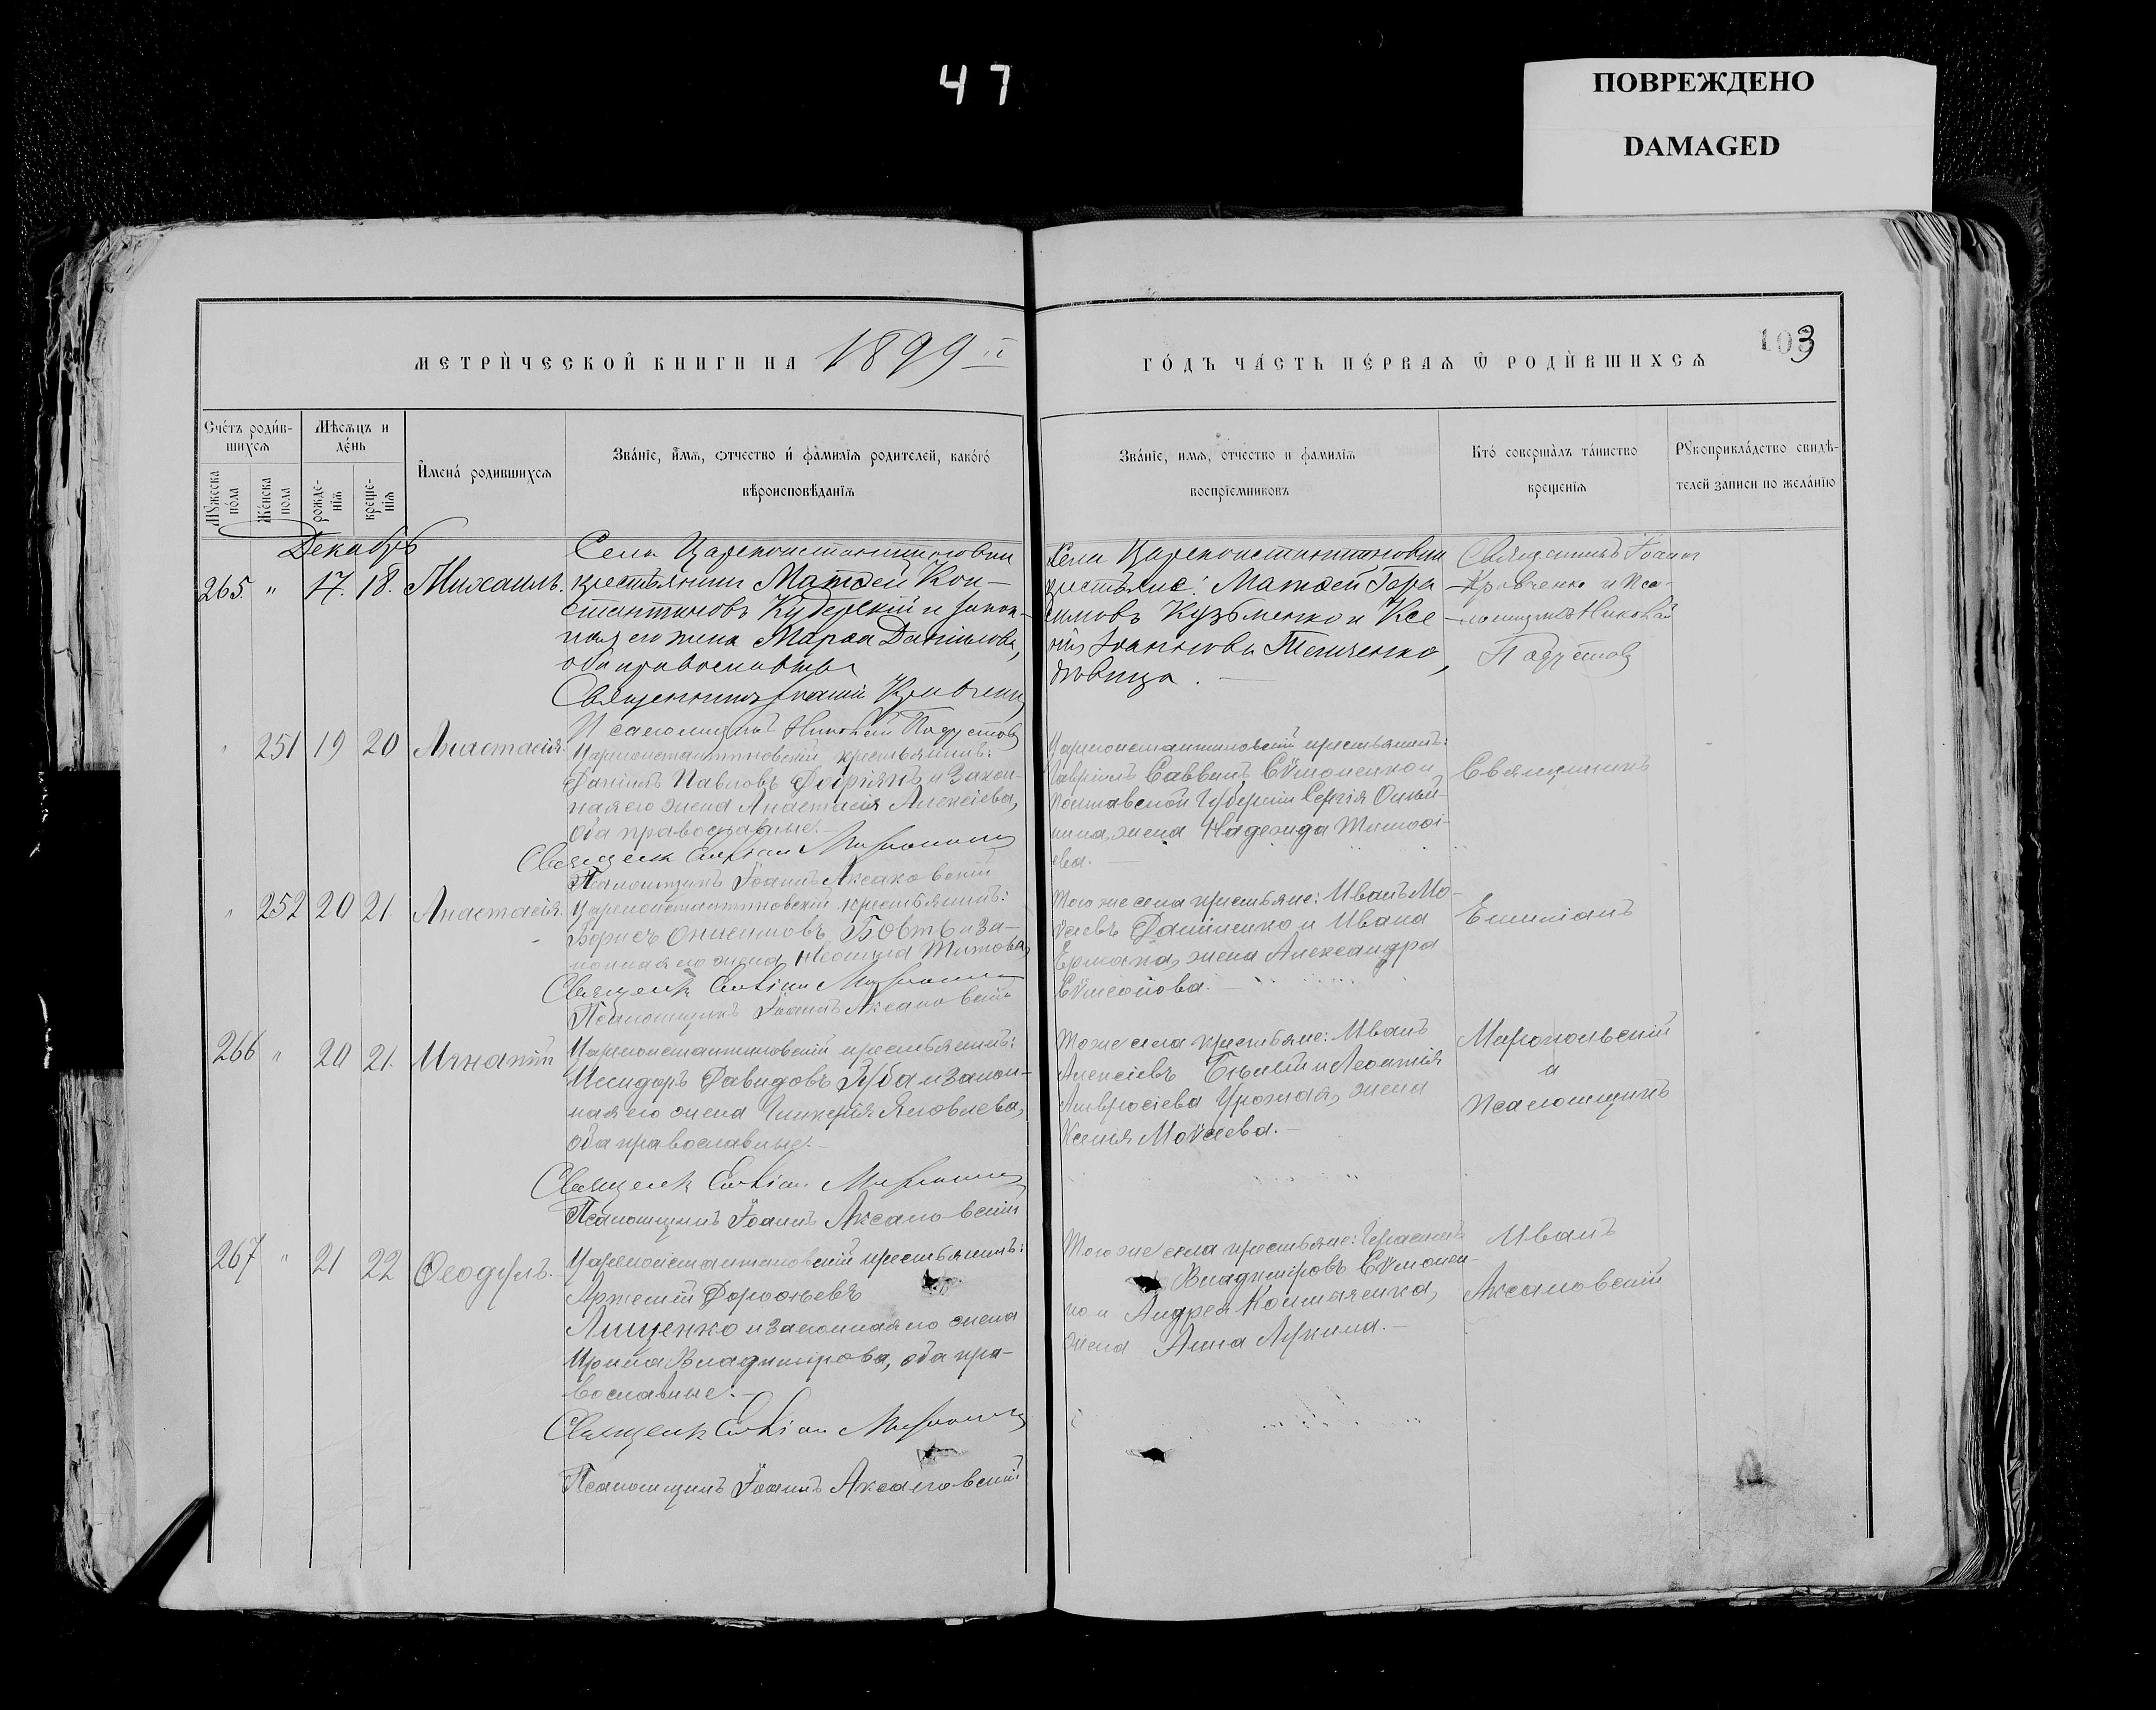 47
ПОВРЕЖДЕНО
DAMAGED
МЕТРИ́ЧЕСКОЙ КНИГИ НА 1899 й
ГО́ДЪ ЧА́СТЬ ПЕ́РВАѦ Ѿ РОДИ́ВШИХСѦ
103
Сче́тъ роди́в-
шихсѧ
Мѣсѧцъ и
де́нь
И҆мена́ родившихсѧ
Зва́нїе, и҆́мѧ, ѻтчество и҆ фами́лїѧ родителей, како́гѡ
вѣроисповѣ́данїѧ
Мꙋжеска
по́ла
Же́нска
пола
рожде-
нїѧ
креще-
нїѧ
Зва́нїе, имѧ, отчество и фами́лїѧ
воспрїемниковъ
Кто́ соверша́лъ та́инство
крещенїѧ
Рꙋкоприкла́дство свидѣ-
телей записи по жела́нїю
Декабрь
265. " 17. 18. Михаилъ.
Села Цареконстантиновки
крестьянинъ Матѳей Кон-
стантиновъ Кудерскій и закон-
ная его жена Марѳа Даніилова,
оба православны
Священникъ Іоаннъ Кравченко
Псаломщикъ Николай Подустовъ
Села Цареконстантиновки
крестьяне: Матѳей Гера-
симовъ Кузьменко и Ксе-
нія Іоаннова Ткаченко,
дѣвица.
Священникъ Іоаннъ
Кравченко и Пса-
ломщикъ Николай
Подустовъ
" 251 19 20 Анастасія.
Цареконстантиновскій крестьянинъ:
Даніилъ Павловъ и Закон-
ная его жена Анастасія Алексіева,
оба православные.
Священник Емиліан Миропольскій
Псаломщикъ Іоаннъ Аксаковскій
Цареконстантиновскій крестьянинъ:
Гавріилъ Саввинъ Сѵмоненко и
Полтавской Губерніи Сергія
жена Надежда Тимоѳі-
ева.
Священникъ
" 252 20 21. Анастасія.
Цареконстантиновскій крестьянинъ:
Борисъ Онисимовъ Бовть и за-
конная его жена Титова,
Священник Емиліан Миропольскій
Псаломщикъ Іоаннъ Аксаковскій
Того же села крестьяне: Иванъ Мо-
ѵсеевъ и Ивана
Ермака, жена Александра
Сѵмеонова.
Емиліанъ
266 " 20 21. Игнатій
Цареконстантиновскій крестьянинъ:
Исидоръ Давидовъ Губа и Закон-
ная его жена Гликерія Яковлева,
оба православные.
Священник Емиліан Миропольскій
Псаломщикъ Іоаннъ Аксаковскій
Тоже села крестьяне: Иванъ
Алексіевъ Бѣлый и Леонтія
Амвросіева жена
Ксенія Моѵсеева.
Миропольскій
и
Псаломщикъ
267 " 21 22 Ѳеодулъ.
Цареконстантиновскій крестьянинъ:
Артемій Дороѳеевъ
Лященко и законная его жена
Ирина Владимірова, оба пра-
вославные.
Священник Емиліан Миропольскій
Псаломщикъ Іоаннъ Аксаковскій
Того же села крестьяне: Герасимъ
Владиміровъ Сѵмонен-
ко и Андрея
жена Анна Лукина.
Иванъ
Аксаковскій